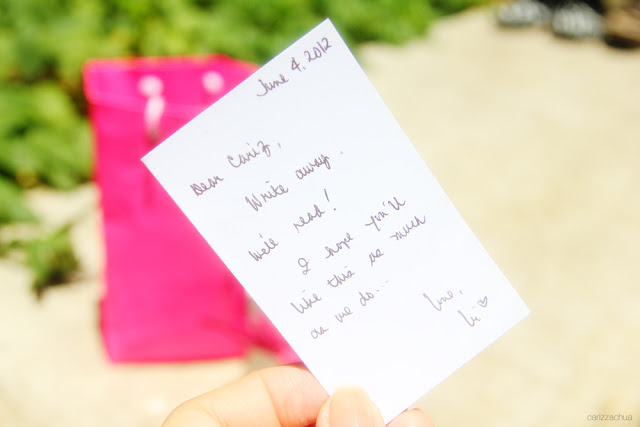 June 4, 2012
Dear Cariz,
Write away.
We'll read!
I hope you'll
like this as much
as we do...
Love,
carizzachua